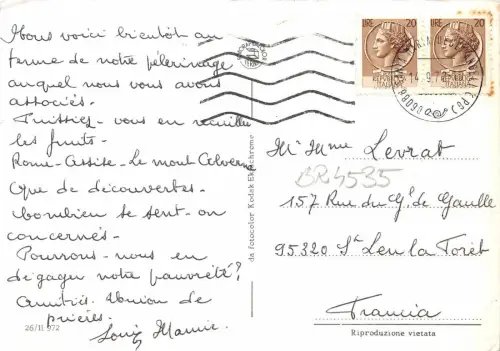 Nous voici bientôt au
terme de notre pélerinage
auquel nous vous avons
associés.
Puissiez-vous en recueillir
les fruits.
Rome - Assise - Le mont Alverne
Que de découvertes.
Combien se sent-on
concernés.
Pourrons-nous en
dégager notre pauvreté?
Amitiés. Union de
prières.
Louis Marie.
26/II 972
da fotocolor Kodak Ektachrome
LIRE 20
LIRE 20
14.9.7
Mr Mme Levrat
BR4535
157 Rue du Gl de Gaulle
95320 St Leu la Forêt
Francia
Riproduzione vietata